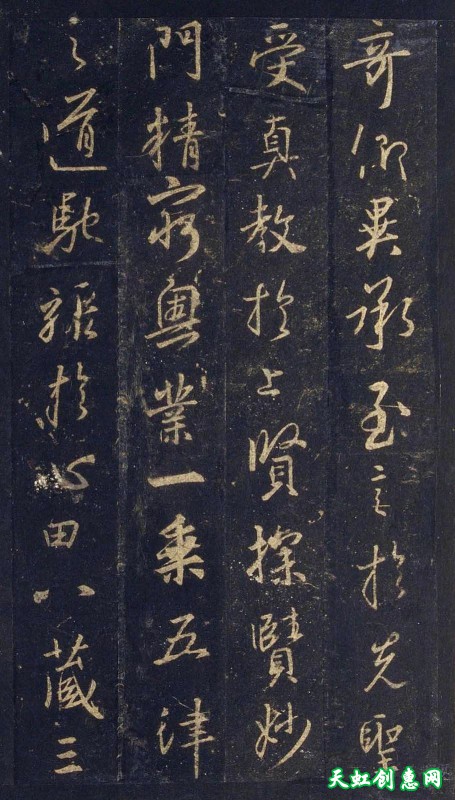 奇仰異承至言於先聖
受真教於上賢探賾妙
門精窮奧業一乘五律
之道馳驟於心田八藏三
天虹创惠网